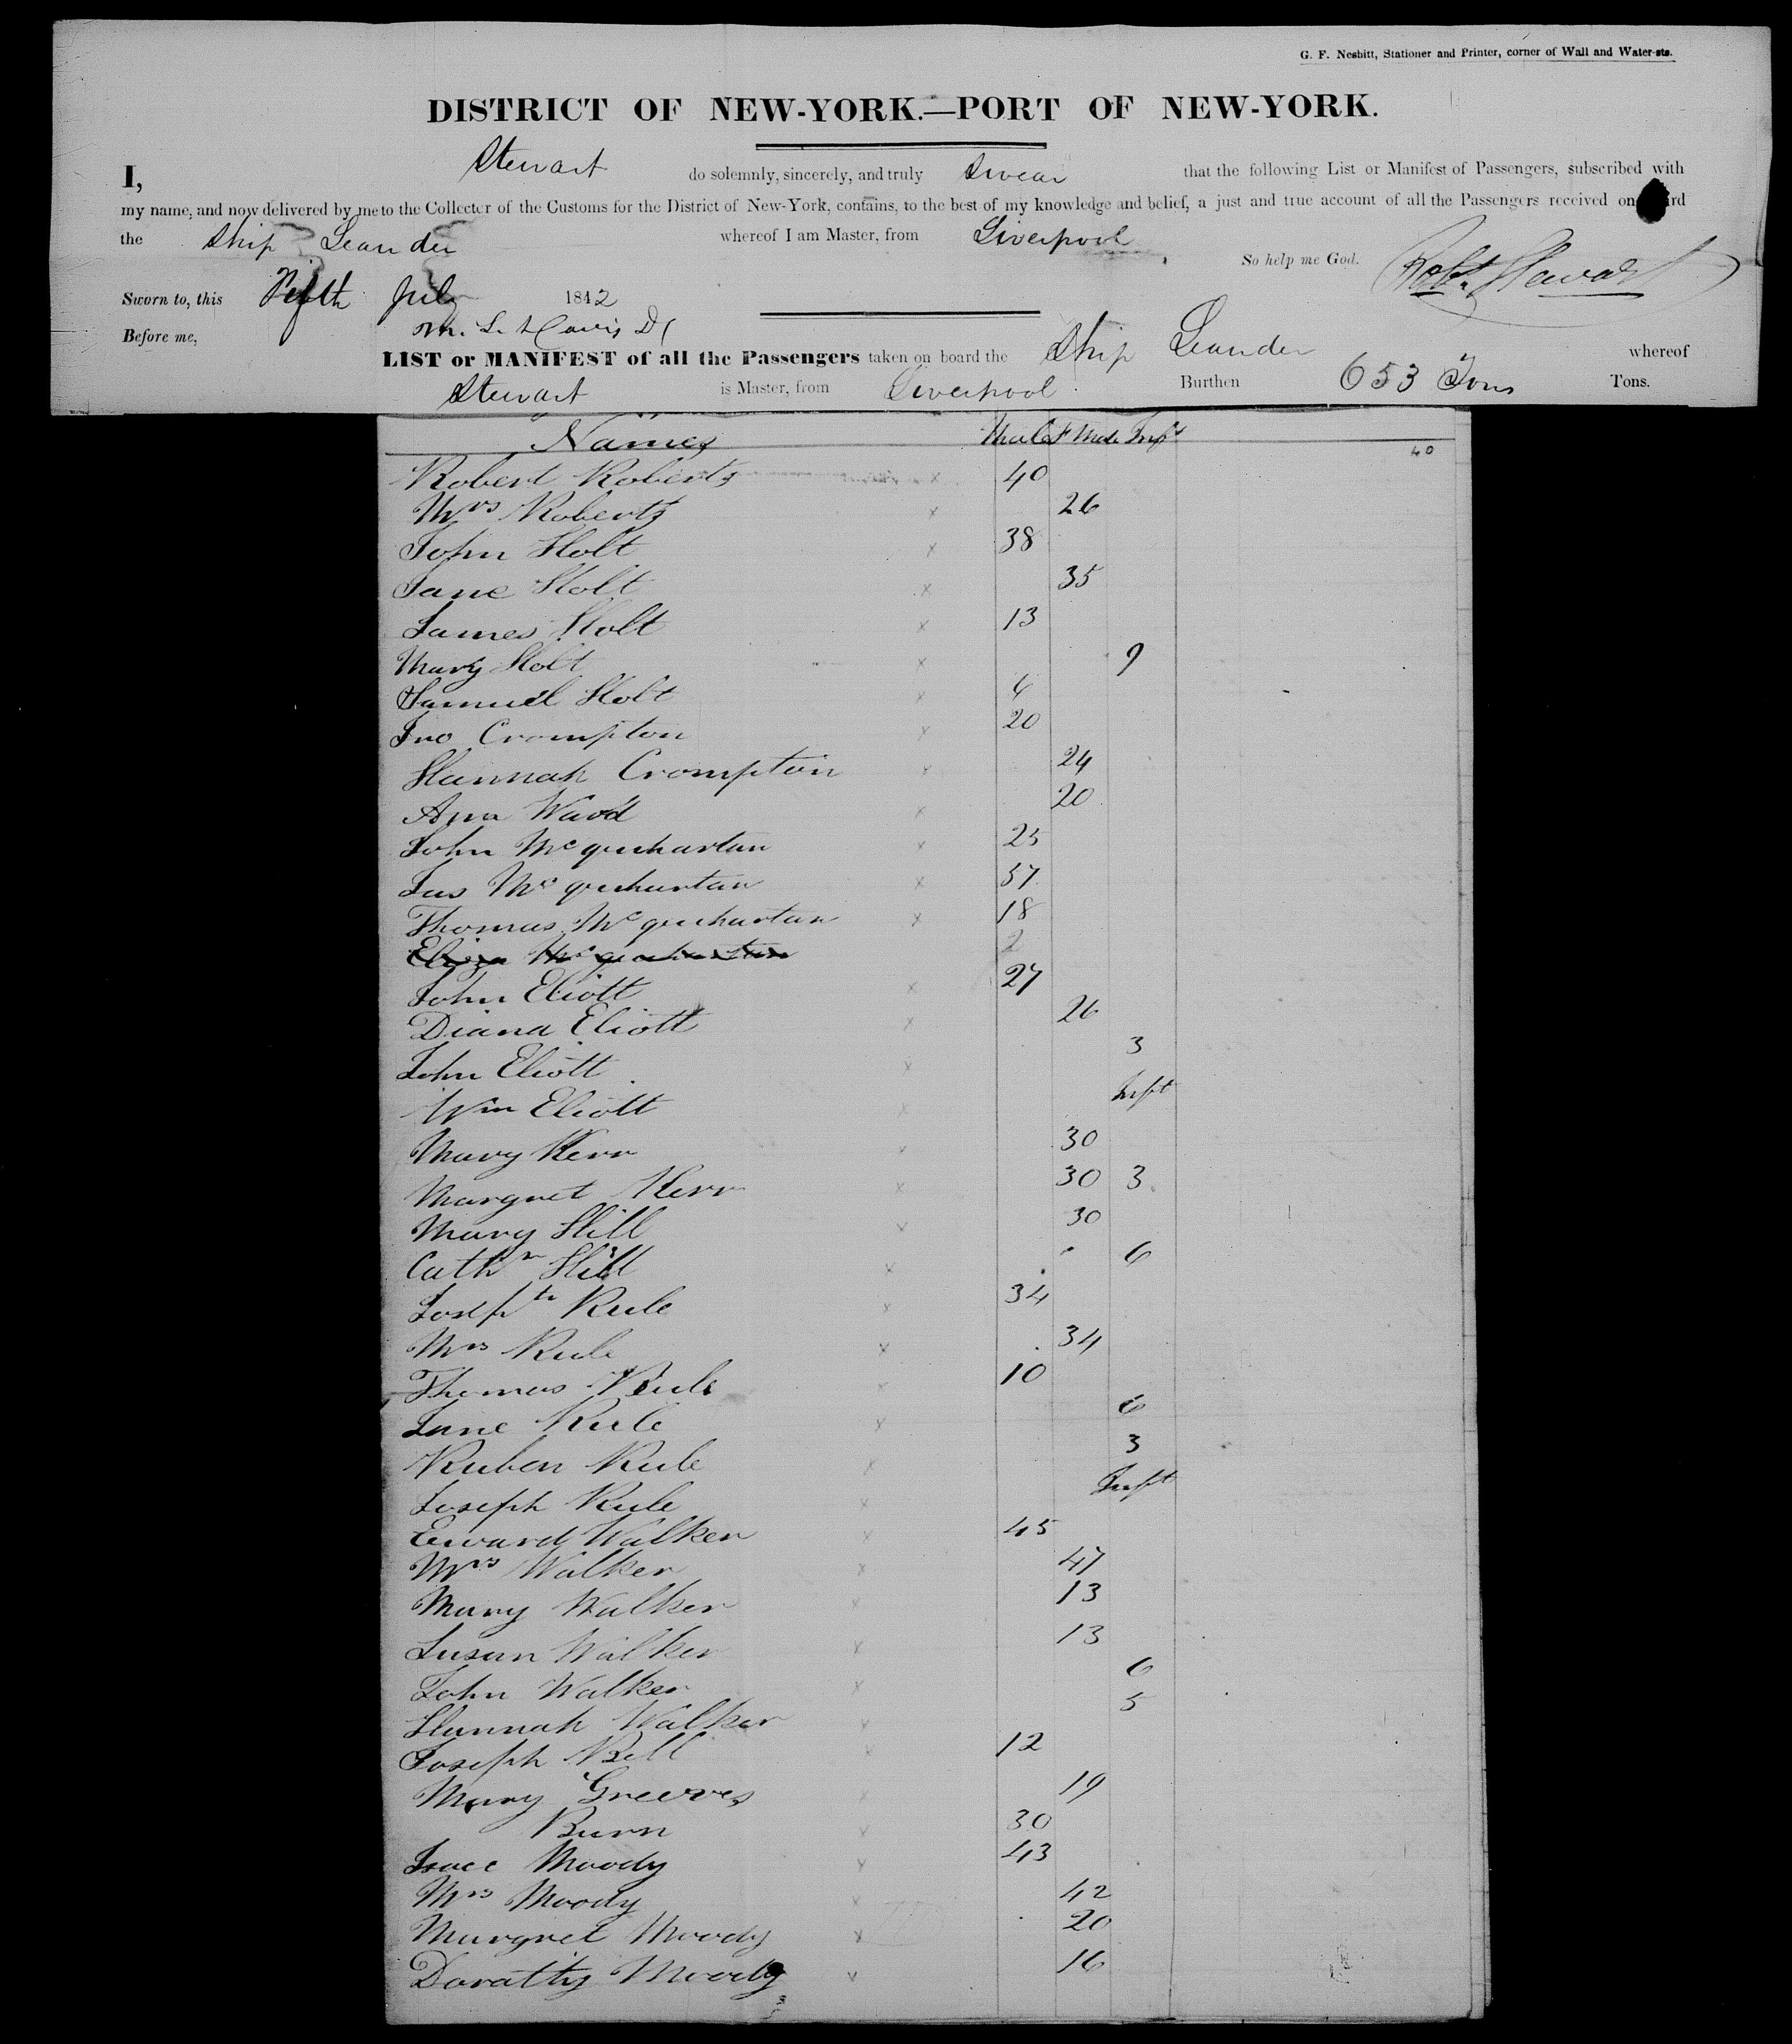 G. F. Nesbitt, Stationer and Printer, corner of Wall and Water-sts.
DISTRICT OF NEW-YORK.—PORT OF NEW-YORK.
I, Stewart do solemnly, sincerely, and truly Swear that the following List or Manifest of Passengers, subscribed with
my name, and now delivered by me to the Collecter of the Customs for the District of New-York, contains, to the best of my knowledge and belief, a just and true account of all the Passengers received on
the Ship Leander whereof I am Master, from Liverpool
So help me God. Robt. Stewart
Sworn to, this Fifth July 1842
Before me,
LIST or MANIFEST of all the Passengers taken on board the Ship Leander whereof
Stewart is Master, from Liverpool Burthen 653 Tons Tons.
Names Male F Male Inft
40
Robert Roberts x 40
Mrs Roberts x 26
John Holt x 38
Jane Holt x 35
James Holt x 13
Mary Holt x 9
Samuel Holt x
Jno Crompton x 20
Hannah Crompton x 24
Ann Ward x 20
John Mcquihartan x 25
Jas Mcquihartan x 57
Thomas Mcquihartan x 18
Eliza Mcquihartan 2
John Eliott x 27
Diana Eliott x 26
John Eliott x 3
Wm Eliott x Inft
Mary Kerr x 30
Margret Kerr x 30 3
Mary Hill x 30
Cathn Hill x 6
Joseph Rule x 34
Mrs Rule x 34
Thomas Rule x 10
Jane Rule x 6
Ruben Rule x 3
Joseph Rule x Inft
Edward Walker x 45
Mrs Walker x 47
Mary Walker x 13
Susan Walker x 13
John Walker x 6
Hannah Walker x 5
Joseph Bell x 12
Mary Greeves x 19
Burn x 30
Isacc Moody x 43
Mrs Moody x 42
Margret Moody x 20
Doratty Moody x 16